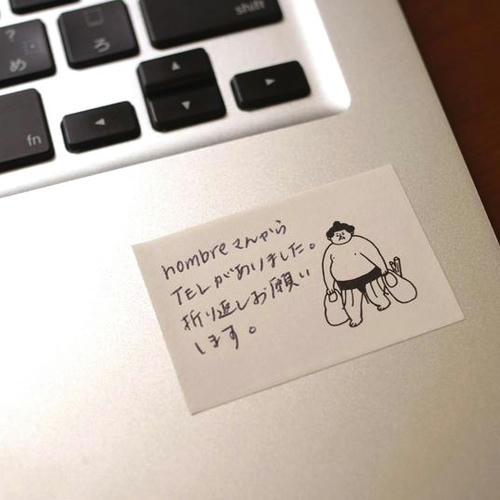 shift
?
・
め
ろ
fn
nombreさんから
TELがありました。
折り返しお願い
します。